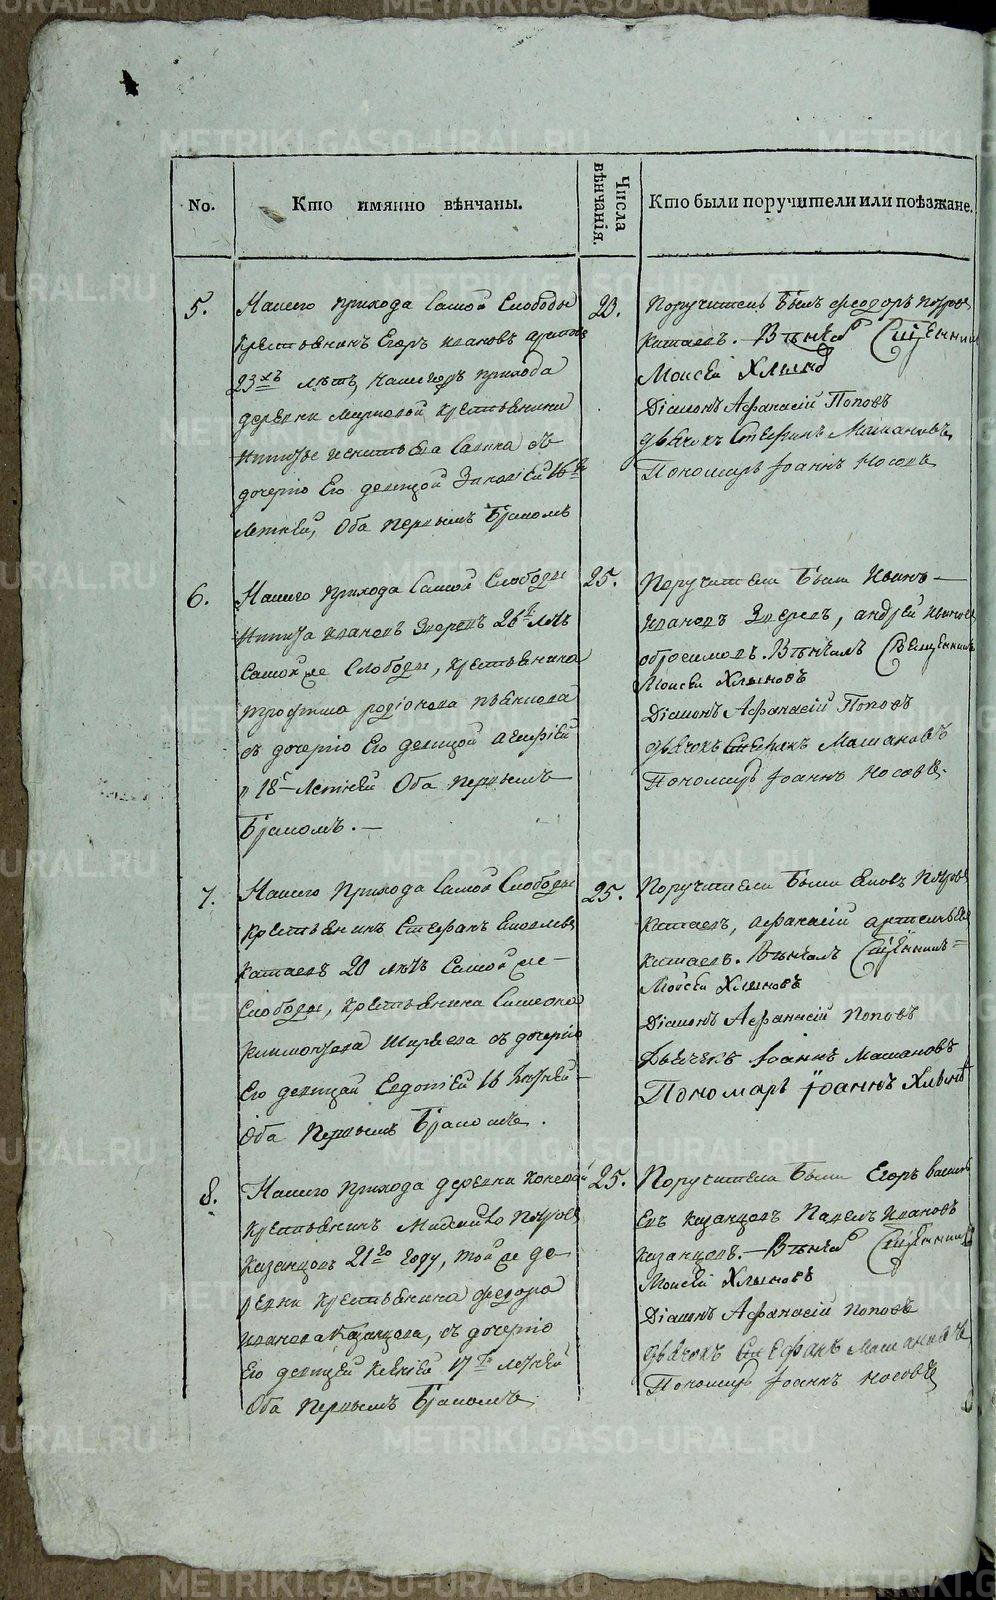 No.
Кто имянно вѣнчаны.
Числа вѣнчанія.
Кто были поручители или поѣзжане.
5.
Нашего прихода Самой Слободы
крестьянинъ Егоръ Ивановъ
23хъ лѣтъ, нашегожъ прихода
деревни крестьянина
Никиты Савина съ
дочерію Его девицой 16ти
летней, Оба первымъ бракомъ
23.
Поручитель былъ Феодоръ Петровъ
Катаевъ. Венчалъ Священникъ
Моисей Хлыновъ
Діаконъ Афанасій Поповъ
дьячокъ Стефанъ Машановъ
Пономарь Іоаннъ Носовъ
6.
Нашего прихода Самой Слободы
Никита Ивановъ Зверевъ 26ть летъ
Самой же Слободы, крестьянина
Трофима Родіонова Пьянкова
съ дочерію Его девицой Агафіей
18-летней Оба первымъ
бракомъ. —
25.
Поручители были Иванъ —
Ивановъ Зверевъ, Андрей
Обросимовъ. Венчалъ Священникъ
Моисей Хлыновъ
Діаконъ Афанасій Поповъ
дьячокъ Стефанъ Машановъ
Пономарь Іоаннъ Носовъ.
7.
Нашего прихода Самой Слободы
крестьянинъ Стефанъ Яковлевъ
Катаевъ 20 летъ Самой же —
Слободы, крестьянина Симеона
Ширяева съ дочерію
Его девицай Евдокіей 16 летней —
Оба первымъ бракомъ.
25.
Поручители были Яковъ Петровъ
Катаевъ, Афанасій Артемьевъ
Катаевъ. Венчалъ Священникъ =
Моисей Хлыновъ
Діаконъ Афанасій Поповъ
Дьячекъ Іоаннъ Машановъ
Пономарь Іоаннъ Хлыновъ
8.
Нашего прихода деревни
крестьянинъ Михайло Петровъ
Казанцовъ 21го году, той же де
ревни крестьянина Федора
Иванова Казанцова, съ дочерію
Его девицей Ксеніей 17ти летней
Оба первымъ бракомъ
25.
Поручители были Егоръ Василь
евъ Казанцовъ Павелъ Ивановъ
Казанцовъ. — Венчалъ Священникъ
Моисей Хлыновъ
Діаконъ Афанасій Поповъ
дьячокъ Стефанъ Машановъ
Пономарь Іоаннъ Носовъ
METRIKI.GASO-URAL.RU